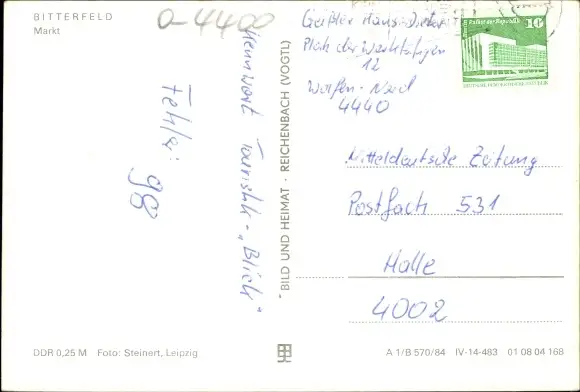 BITTERFELD
Markt
O-4400
Kennwort Touristik-„Blick"
Fehler: 98
"BILD UND HEIMAT · REICHENBACH (VOGTL)
Geißler Hans-Dieter
Platz der Werktätigen
12
Wolfen-Nord
4440
Palast der Republik
10
Mitteldeutsche Zeitung
Postfach 531
Halle
4002
DDR 0,25 M Foto: Steinert, Leipzig
A 1/B 570/84 IV-14-483 01 08 04 168